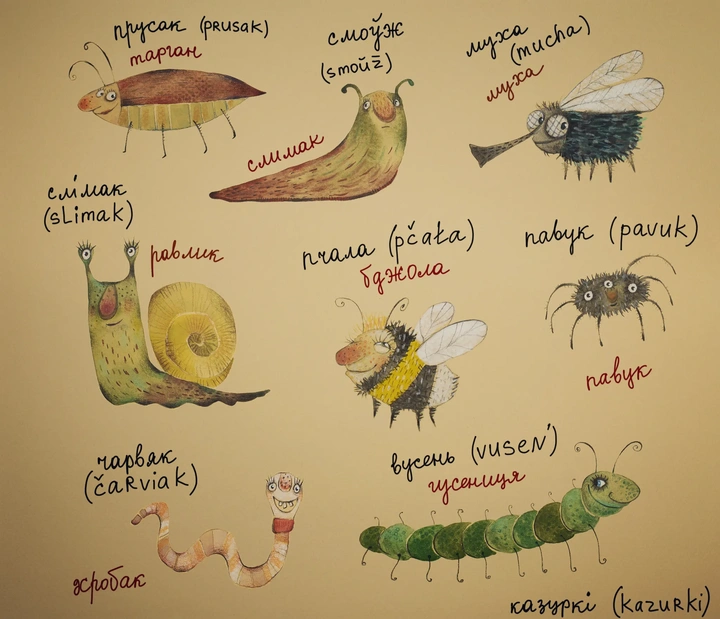 прусак (prusak)
тарган
смоўж
(smoŭž)
слимак
муха
(mucha)
муха
слімак
(slimak)
равлик
пчала (pčała)
бджола
павук (pavuk)
павук
чарвяк
(čarviak)
хробак
вусень (vuseń)
гусениця
казуркі (kazurki)